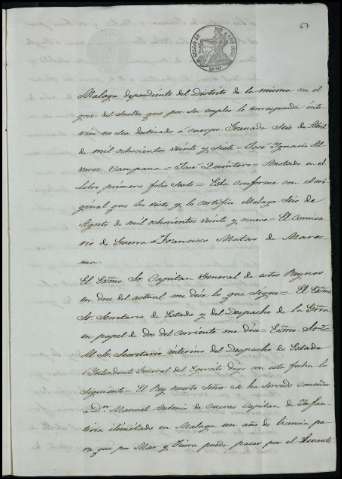 Malaga dependiente del Distrito de la misma en el
goce del sueldo que por su empleo le corresponda interin
se le destina á cuerpo Granada Seis de Abril
de mil ochocientos veinte y siete = Jose Ignacio
Campana = José = Anotado en el
Libro primero folio siete = Esta conforme con el original
que he visto y lo certifico Malaga Seis de
Agosto de mil ochocientos veinte y nueve = El Comisario
de Guerra = Francisco Matas de
El Exmo Sr Capitan General de estos Reynos
en doce del actual me dice lo que sigue = El Exmo
Sr Secretario de Estado y del Despacho de la Guerra
en papel de dos del corriente me dice = Exmo Señor
Al Sr Secretario interino del Despacho de Estado
Intendente General del Egercito digo con esta fecha lo
siguiente = El Rey nuestro Señor se ha servido conceder
á Dn Manuel Antonio de Capitan de Infanteria
ilimitado en Malaga un año de licencia para
que por Mar y Tierra pueda pasar por el